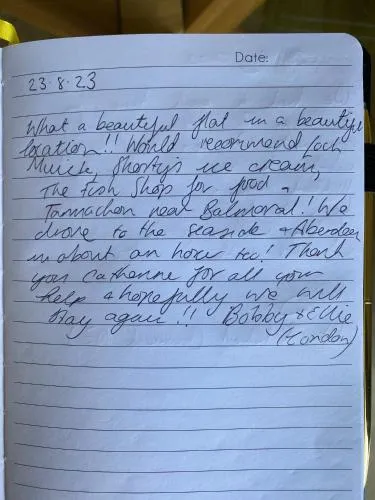 Date:
23.8.23
What a beautiful flat in a beautiful
location!! Would recommend Loch
Muick, Shorty's ice cream,
The Fish Shop for food,
Tarmachan near Balmoral! We
drove to the seaside & Aberdeen
in about an hour too! Thank
you Catherine for all your
help & hopefully we will
stay again!! Bobby & Ellie
(London)